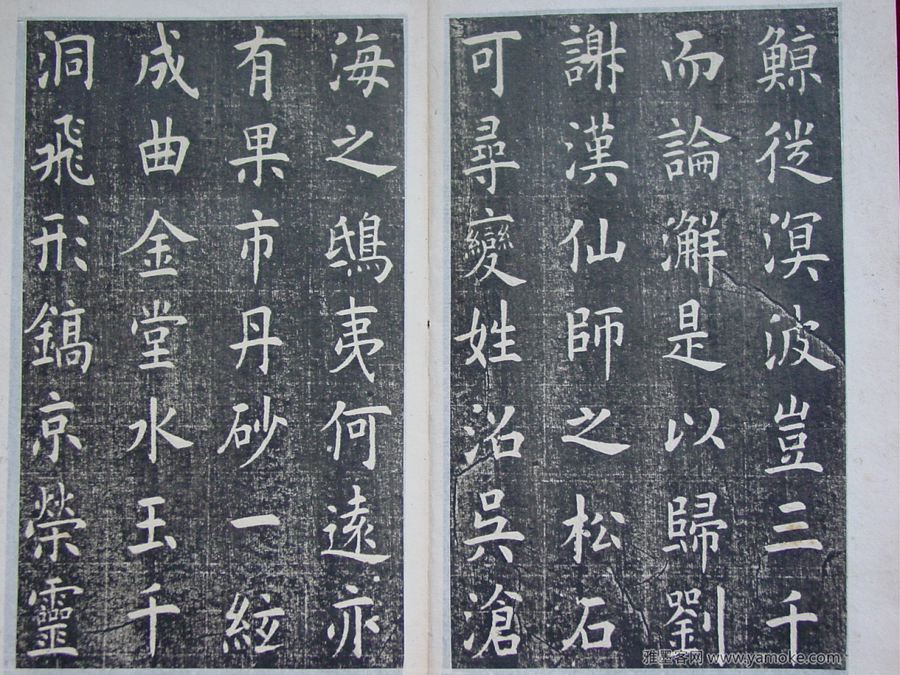 鯨從溟波豈三千
而論澥是以歸劉
謝漢仙師之松石
可尋變姓沿吳滄
海之鴟夷何遠亦
有果市丹砂一絃
成曲金堂水玉千
洞飛形鎬京榮靈
雅墨客网 www.yamoke.com